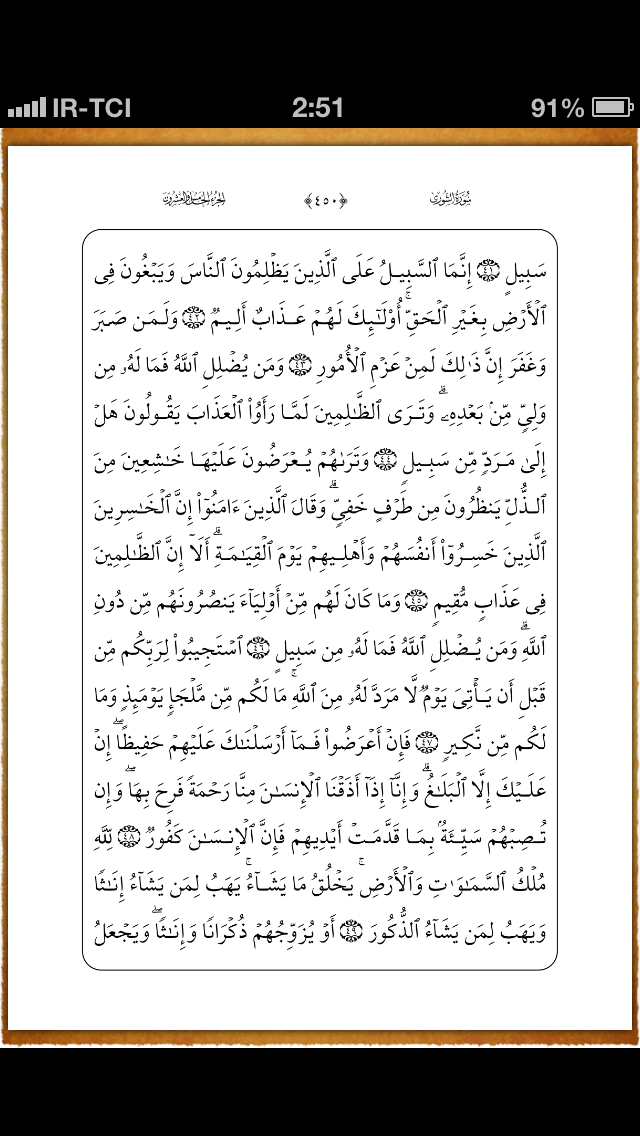 IR-TCI 2:51 91%
سُورَةُ الشُّورَىٰ ﴿٤٥٠﴾ الجزء الخامس والعشرون
سَبِيلٍ ﴿٤١﴾ إِنَّمَا ٱلسَّبِيلُ عَلَى ٱلَّذِينَ يَظْلِمُونَ ٱلنَّاسَ وَيَبْغُونَ فِى
ٱلْأَرْضِ بِغَيْرِ ٱلْحَقِّ ۚ أُو۟لَـٰٓئِكَ لَهُمْ عَذَابٌ أَلِيمٌ ﴿٤٢﴾ وَلَمَن صَبَرَ
وَغَفَرَ إِنَّ ذَٰلِكَ لَمِنْ عَزْمِ ٱلْأُمُورِ ﴿٤٣﴾ وَمَن يُضْلِلِ ٱللَّهُ فَمَا لَهُۥ مِن
وَلِىٍّ مِّنۢ بَعْدِهِۦ ۗ وَتَرَى ٱلظَّـٰلِمِينَ لَمَّا رَأَوُا۟ ٱلْعَذَابَ يَقُولُونَ هَلْ
إِلَىٰ مَرَدٍّ مِّن سَبِيلٍ ﴿٤٤﴾ وَتَرَىٰهُمْ يُعْرَضُونَ عَلَيْهَا خَـٰشِعِينَ مِنَ
ٱلذُّلِّ يَنظُرُونَ مِن طَرْفٍ خَفِىٍّ ۗ وَقَالَ ٱلَّذِينَ ءَامَنُوٓا۟ إِنَّ ٱلْخَـٰسِرِينَ
ٱلَّذِينَ خَسِرُوٓا۟ أَنفُسَهُمْ وَأَهْلِيهِمْ يَوْمَ ٱلْقِيَـٰمَةِ ۗ أَلَآ إِنَّ ٱلظَّـٰلِمِينَ
فِى عَذَابٍ مُّقِيمٍ ﴿٤٥﴾ وَمَا كَانَ لَهُم مِّنْ أَوْلِيَآءَ يَنصُرُونَهُم مِّن دُونِ
ٱللَّهِ ۗ وَمَن يُضْلِلِ ٱللَّهُ فَمَا لَهُۥ مِن سَبِيلٍ ﴿٤٦﴾ ٱسْتَجِيبُوا۟ لِرَبِّكُم مِّن
قَبْلِ أَن يَأْتِىَ يَوْمٌ لَّا مَرَدَّ لَهُۥ مِنَ ٱللَّهِ ۚ مَا لَكُم مِّن مَّلْجَإٍ يَوْمَئِذٍ وَمَا
لَكُم مِّن نَّكِيرٍ ﴿٤٧﴾ فَإِنْ أَعْرَضُوا۟ فَمَآ أَرْسَلْنَـٰكَ عَلَيْهِمْ حَفِيظًا ۖ إِنْ
عَلَيْكَ إِلَّا ٱلْبَلَـٰغُ ۗ وَإِنَّآ إِذَآ أَذَقْنَا ٱلْإِنسَـٰنَ مِنَّا رَحْمَةً فَرِحَ بِهَا ۖ وَإِن
تُصِبْهُمْ سَيِّئَةٌۢ بِمَا قَدَّمَتْ أَيْدِيهِمْ فَإِنَّ ٱلْإِنسَـٰنَ كَفُورٌ ﴿٤٨﴾ لِلَّهِ
مُلْكُ ٱلسَّمَـٰوَٰتِ وَٱلْأَرْضِ ۚ يَخْلُقُ مَا يَشَآءُ ۚ يَهَبُ لِمَن يَشَآءُ إِنَـٰثًا
وَيَهَبُ لِمَن يَشَآءُ ٱلذُّكُورَ ﴿٤٩﴾ أَوْ يُزَوِّجُهُمْ ذُكْرَانًا وَإِنَـٰثًا ۖ وَيَجْعَلُ